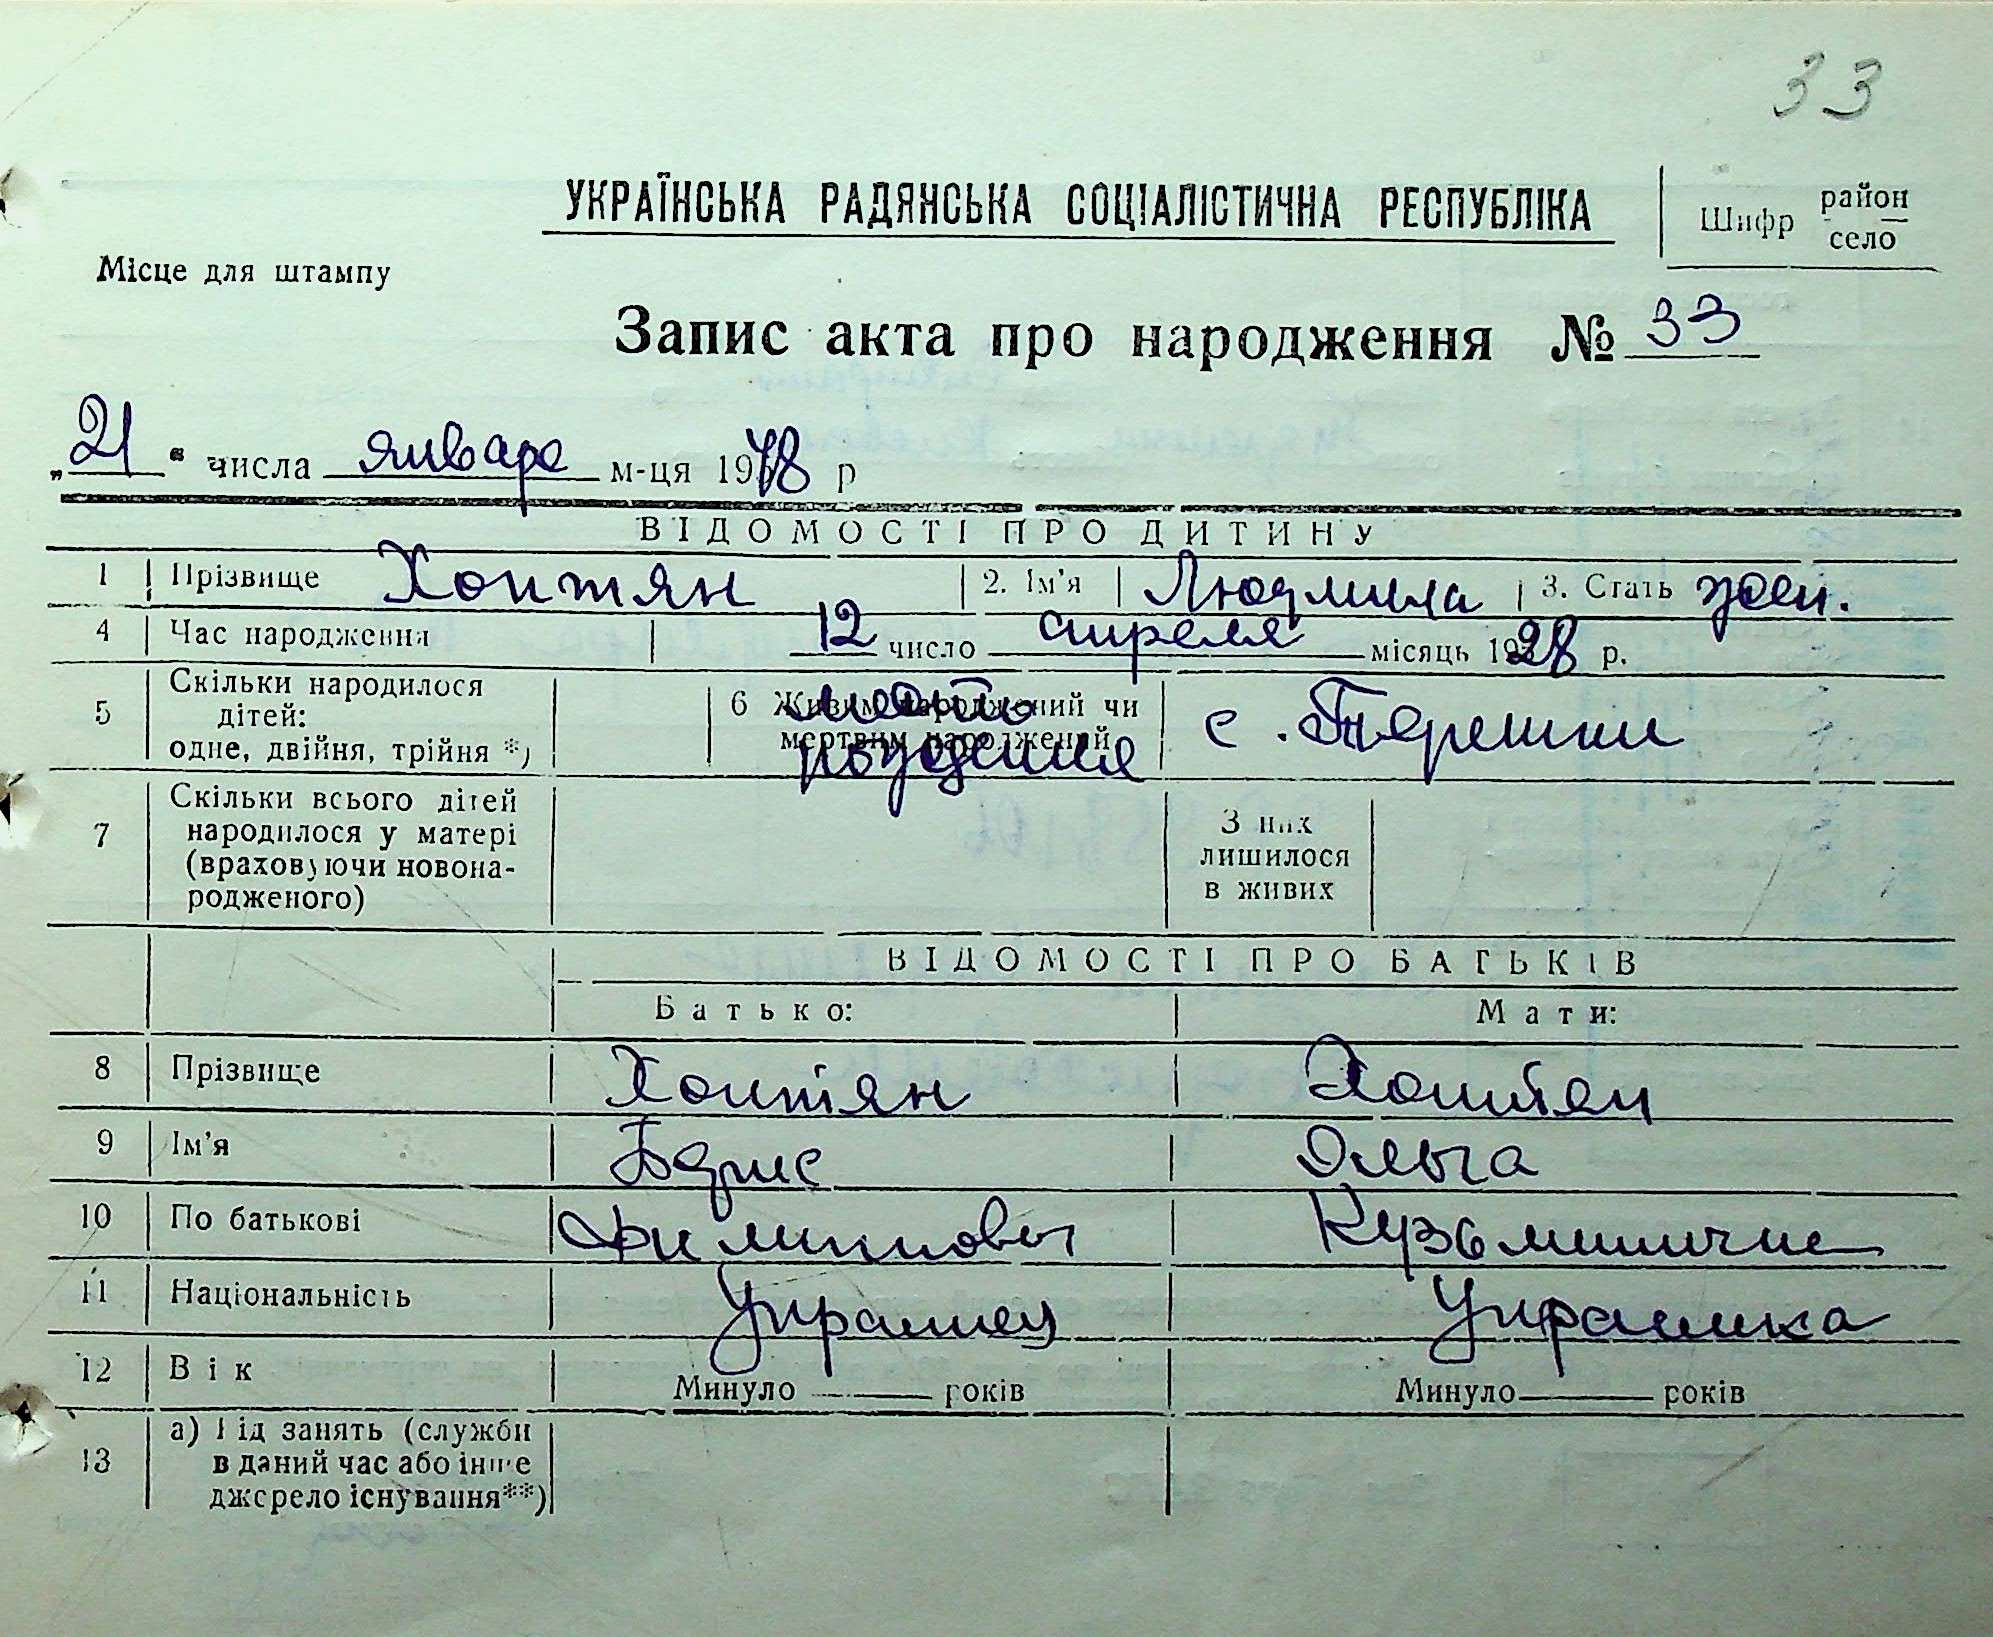 33
УКРАЇНСЬКА РАДЯНСЬКА СОЦІАЛІСТИЧНА РЕСПУБЛІКА
Шифр район
село
Місце для штампу
Запис акта про народження № 33
„21“ числа января м-ця 1948 р
ВІДОМОСТІ ПРО ДИТИНУ
1 Прізвище Хоптян 2. Ім'я Людмила 3. Стать жен.
4 Час народження 12 число апреля місяць 1928 р.
5 Скільки народилося дітей: одне, двійня, трійня *)
6 Живим народжений чи мертвим народжений
место рождения
с. Терешки
7 Скільки всього дітей народилося у матері (враховуючи новонародженого)
З них лишилося в живих
ВІДОМОСТІ ПРО БАТЬКІВ
Батько: Мати:
8 Прізвище Хоптян Хоптян
9 Ім'я Борис Ольга
10 По батькові Филиппович Кузьминична
11 Національність Украинец Украинка
12 Вік Минуло років Минуло років
13 а) Рід занять (служби
в даний час або інше
джерело існування**)